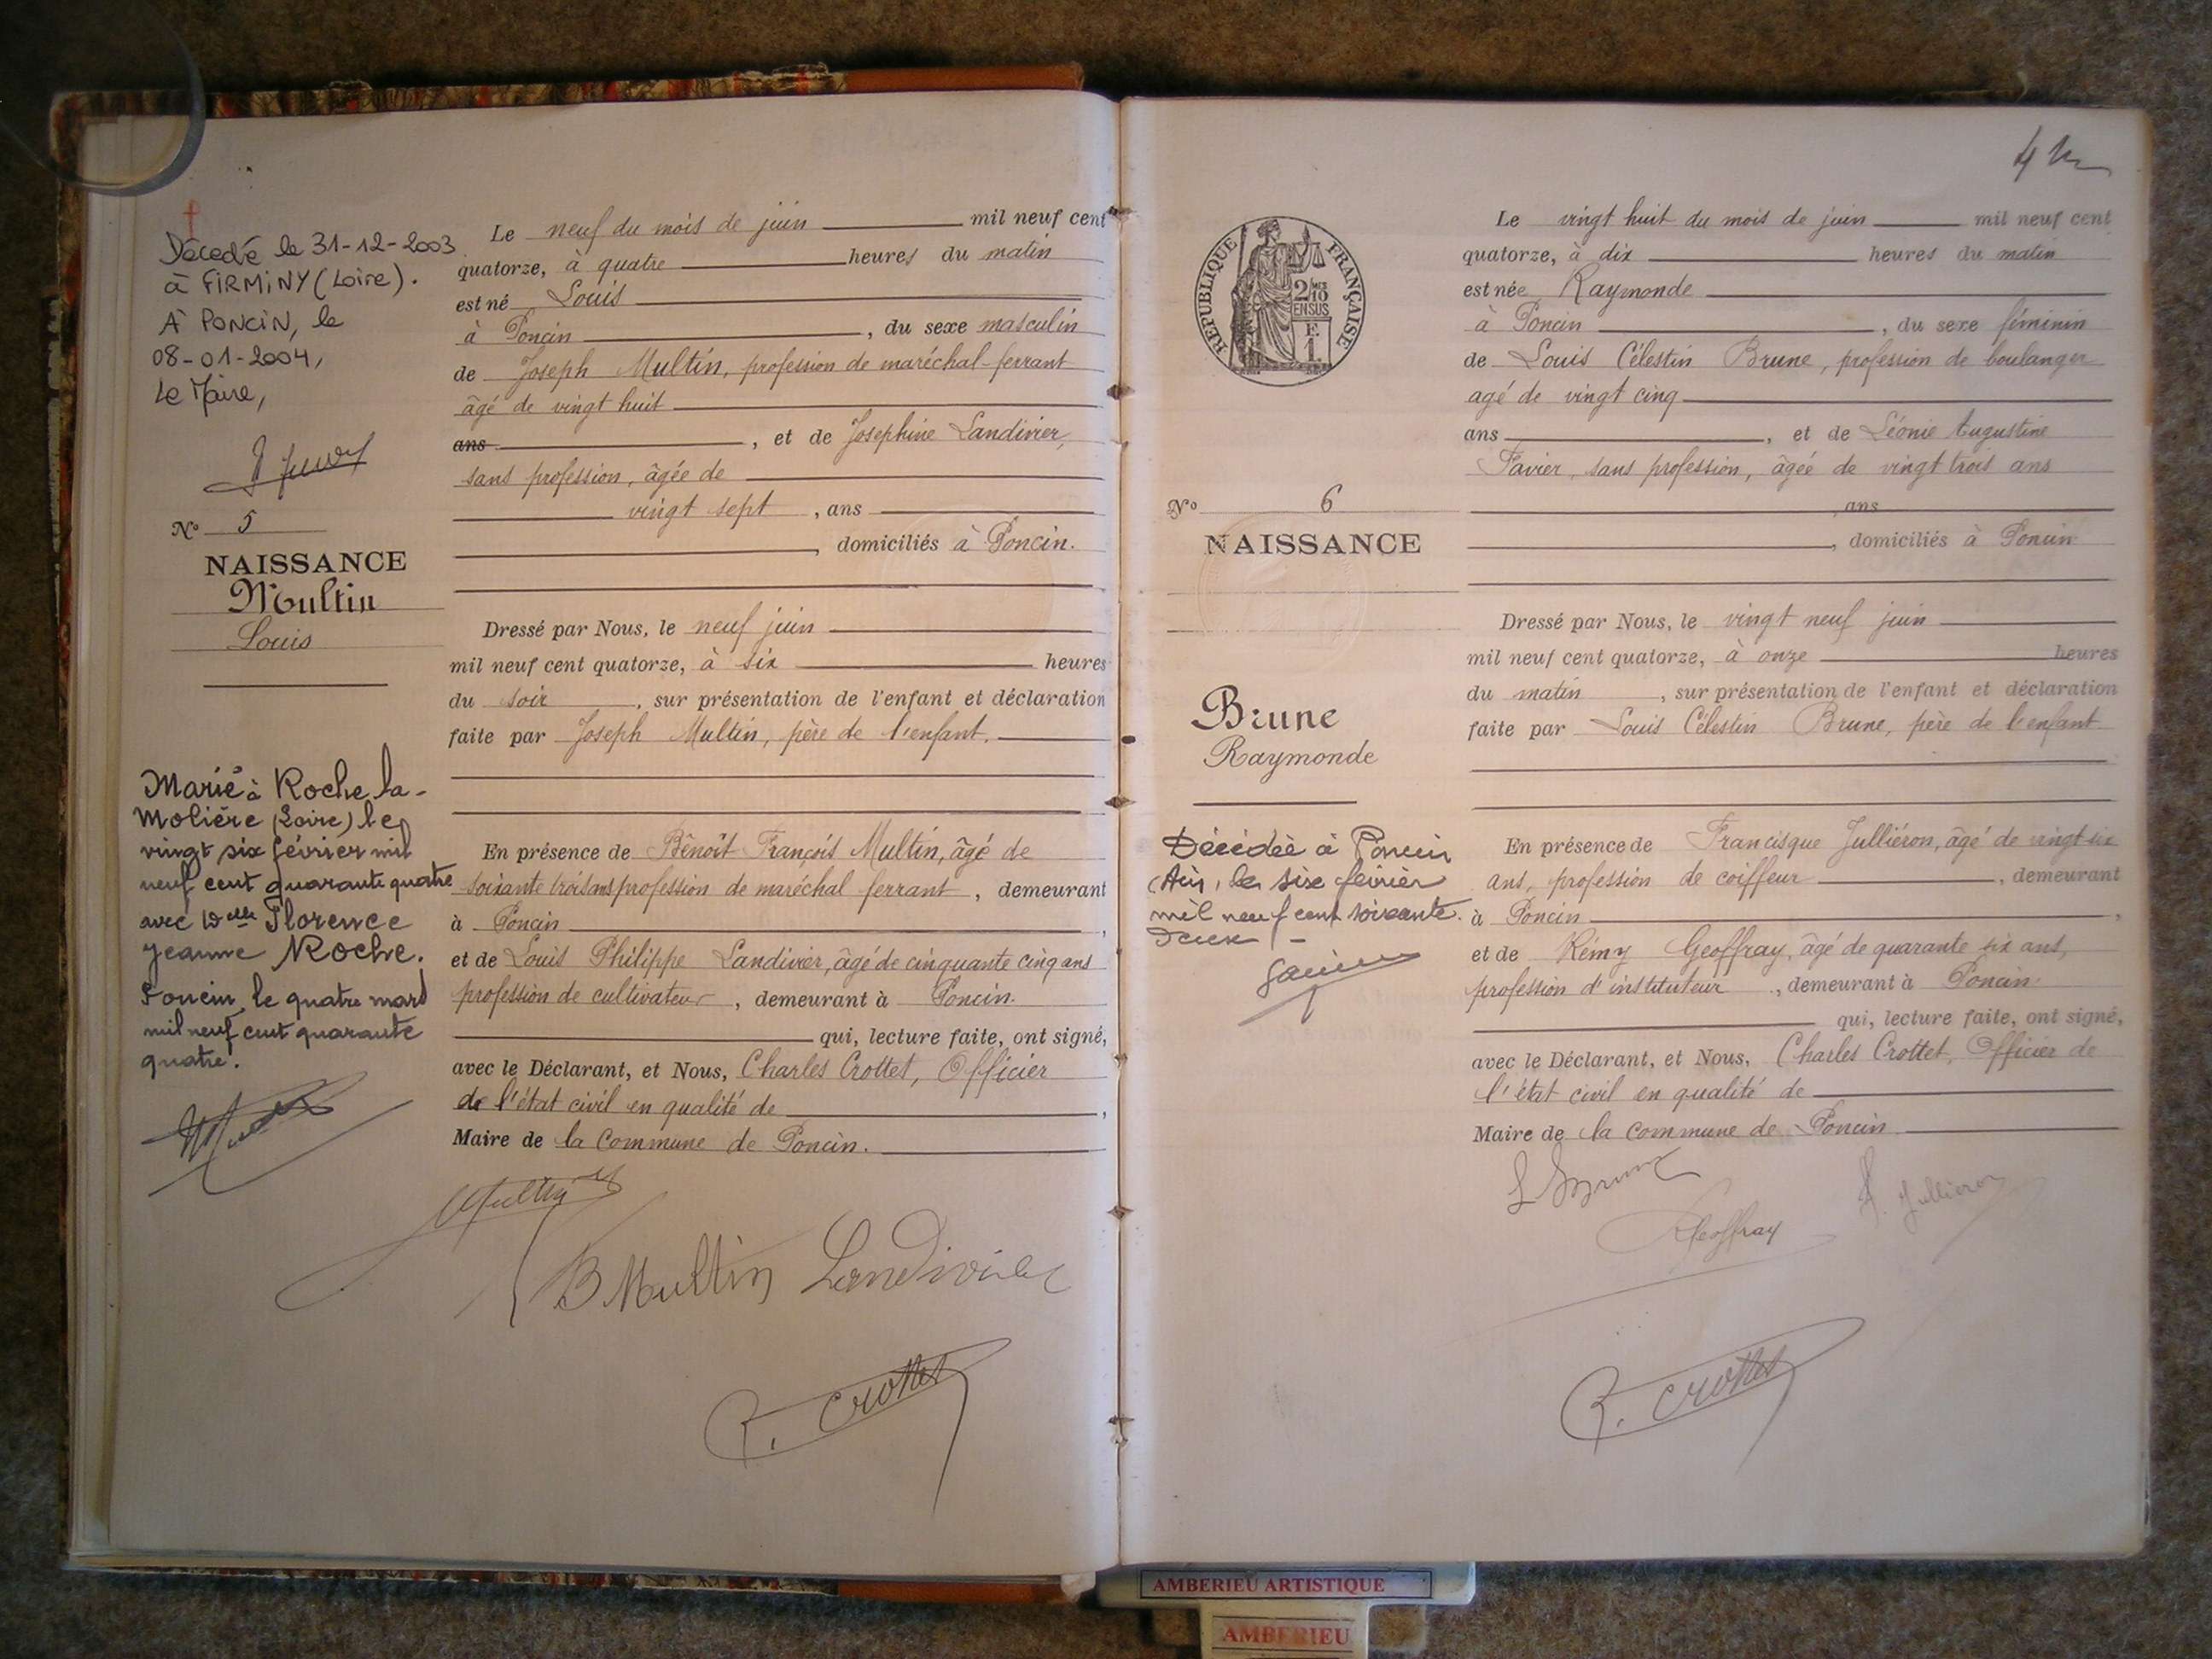 Décedé le 31-12-2003
à FIRMINY (Loire).
A PONCIN, le
08-01-2004,
Le Maire,
N° 5
NAISSANCE
Multin
Louis
Marié à Roche la-
Molière (Loire) le
vingt six février mil
neuf cent quarante quatre
avec Delle Florence
Jeanne Roche.
Poncin, le quatre mars
mil neuf cent quarante
quatre.
Le neuf du mois de juin mil neuf cent
quatorze, à quatre heures du matin
est né Louis
à Poncin, du sexe masculin
de Joseph Multin, profession de maréchal-ferrant
âgé de vingt huit
ans, et de Josephine Landivier,
sans profession, âgée de
vingt sept, ans
, domiciliés à Poncin.
Dressé par Nous, le neuf juin
mil neuf cent quatorze, à six heures
du soir, sur présentation de l'enfant et déclaration
faite par Joseph Multin, père de l'enfant.
En présence de Bênoît François Multin, âgé de
soixante trois ans profession de maréchal ferrant, demeurant
à Poncin,
et de Louis Philippe Landivier, âgé de cinquante cinq ans
profession de cultivateur, demeurant à Poncin.
qui, lecture faite, ont signé,
avec le Déclarant, et Nous, Charles Crottet, Officier
de l'état civil en qualité de,
Maire de la Commune de Poncin.
Multin
B Multin Landivier
R. Crottet
4
REPUBLIQUE FRANÇAISE
2/10
EN SUS
E.
1
N° 6
NAISSANCE
Brune
Raymonde
Décédée à Poncin
(Ain, le six février
mil neuf cent soixante
deux -
Le vingt huit du mois de juin mil neuf cent
quatorze, à dix heures du matin
est née Raymonde
à Poncin, du sexe féminin
de Louis Célestin Brune, profession de boulanger
agé de vingt cinq
ans, et de Léonie Augustine
Favier, sans profession, âgée de vingt trois ans
, ans
, domiciliés à Poncin
Dressé par Nous, le vingt neuf juin
mil neuf cent quatorze, à onze heures
du matin, sur présentation de l'enfant et déclaration
faite par Louis Célestin Brune, père de l'enfant
En présence de Francisque Julliéron, âgé de vingt six
ans, profession de coiffeur, demeurant
à Poncin,
et de Rémy Geoffray, âgé de quarante six ans,
profession d'instituteur, demeurant à Poncin.
qui, lecture faite, ont signé,
avec le Déclarant, et Nous, Charles Crottet, Officier de
l'état civil en qualité de
Maire de la Commune de Poncin
L Brune
Geoffray
F. Jullieron
R. Crottet
AMBERIEU ARTISTIQUE
AMBERIEU